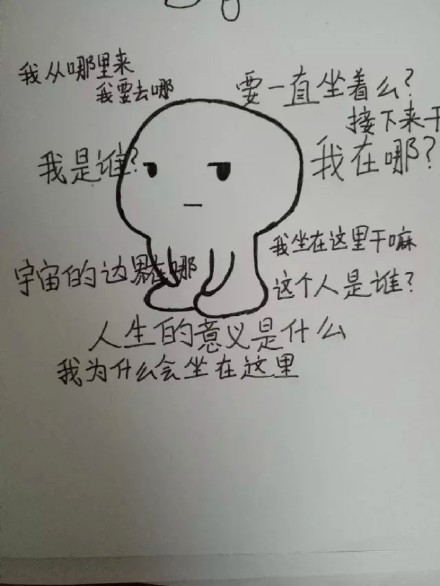 我从哪里来
我要去哪
要一直坐着么?
接下来干
我是谁?
我在哪?
我坐在这里干嘛
宇宙的边界在哪
这个人是谁?
人生的意义是什么
我为什么会坐在这里